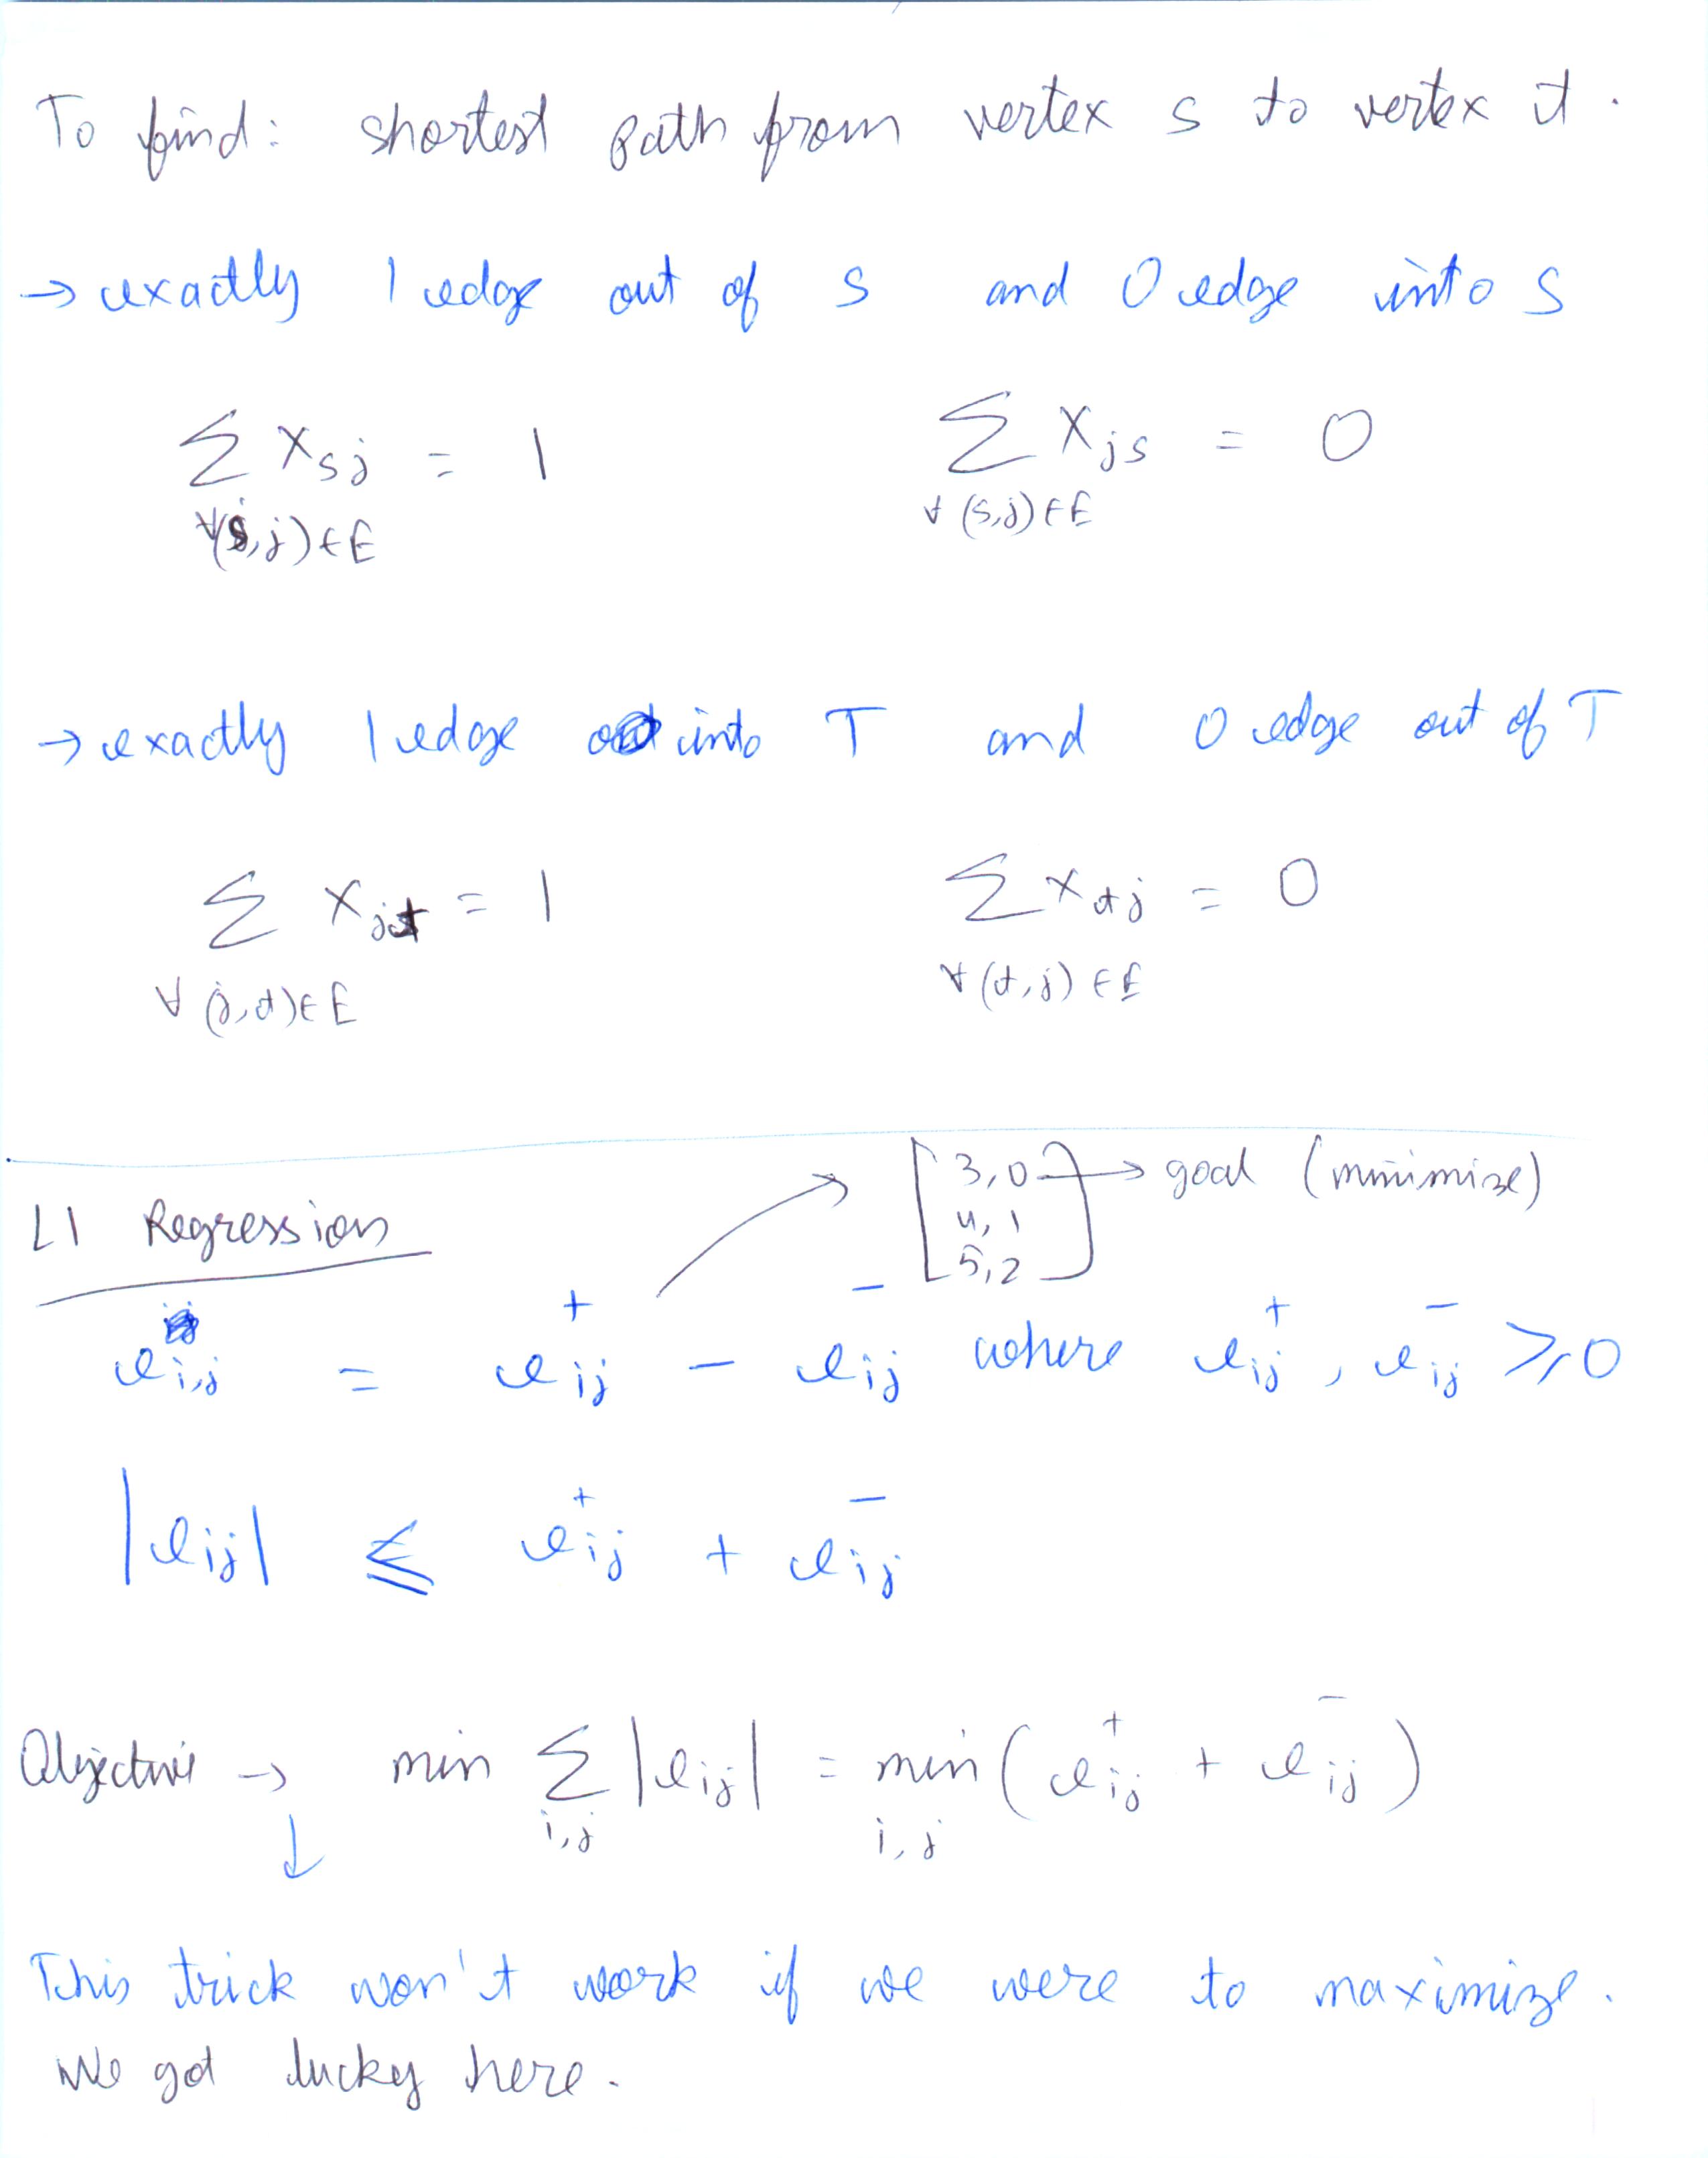 To find: shortest path from vertex s to vertex t.
→ exactly 1 edge out of s and 0 edge into s
∑ x_sj = 1 ∑ x_js = 0
∀(s,j)∈E ∀(s,j)∈E
→ exactly 1 edge into T and 0 edge out of T
∑ x_jt = 1 ∑ x_tj = 0
∀(j,t)∈E ∀(t,j)∈E
[3,0 → goal (minimize)
4,1
5,2]
L1 Regression
e_i,j = e_ij^+ - e_ij^- where e_ij^+, e_ij^- ≥ 0
|e_ij| ≤ e_ij^+ + e_ij^-
Objective → min ∑ |e_ij| = min (e_ij^+ + e_ij^-)
i,j i,j
↓
This trick won't work if we were to maximize.
We got lucky here.